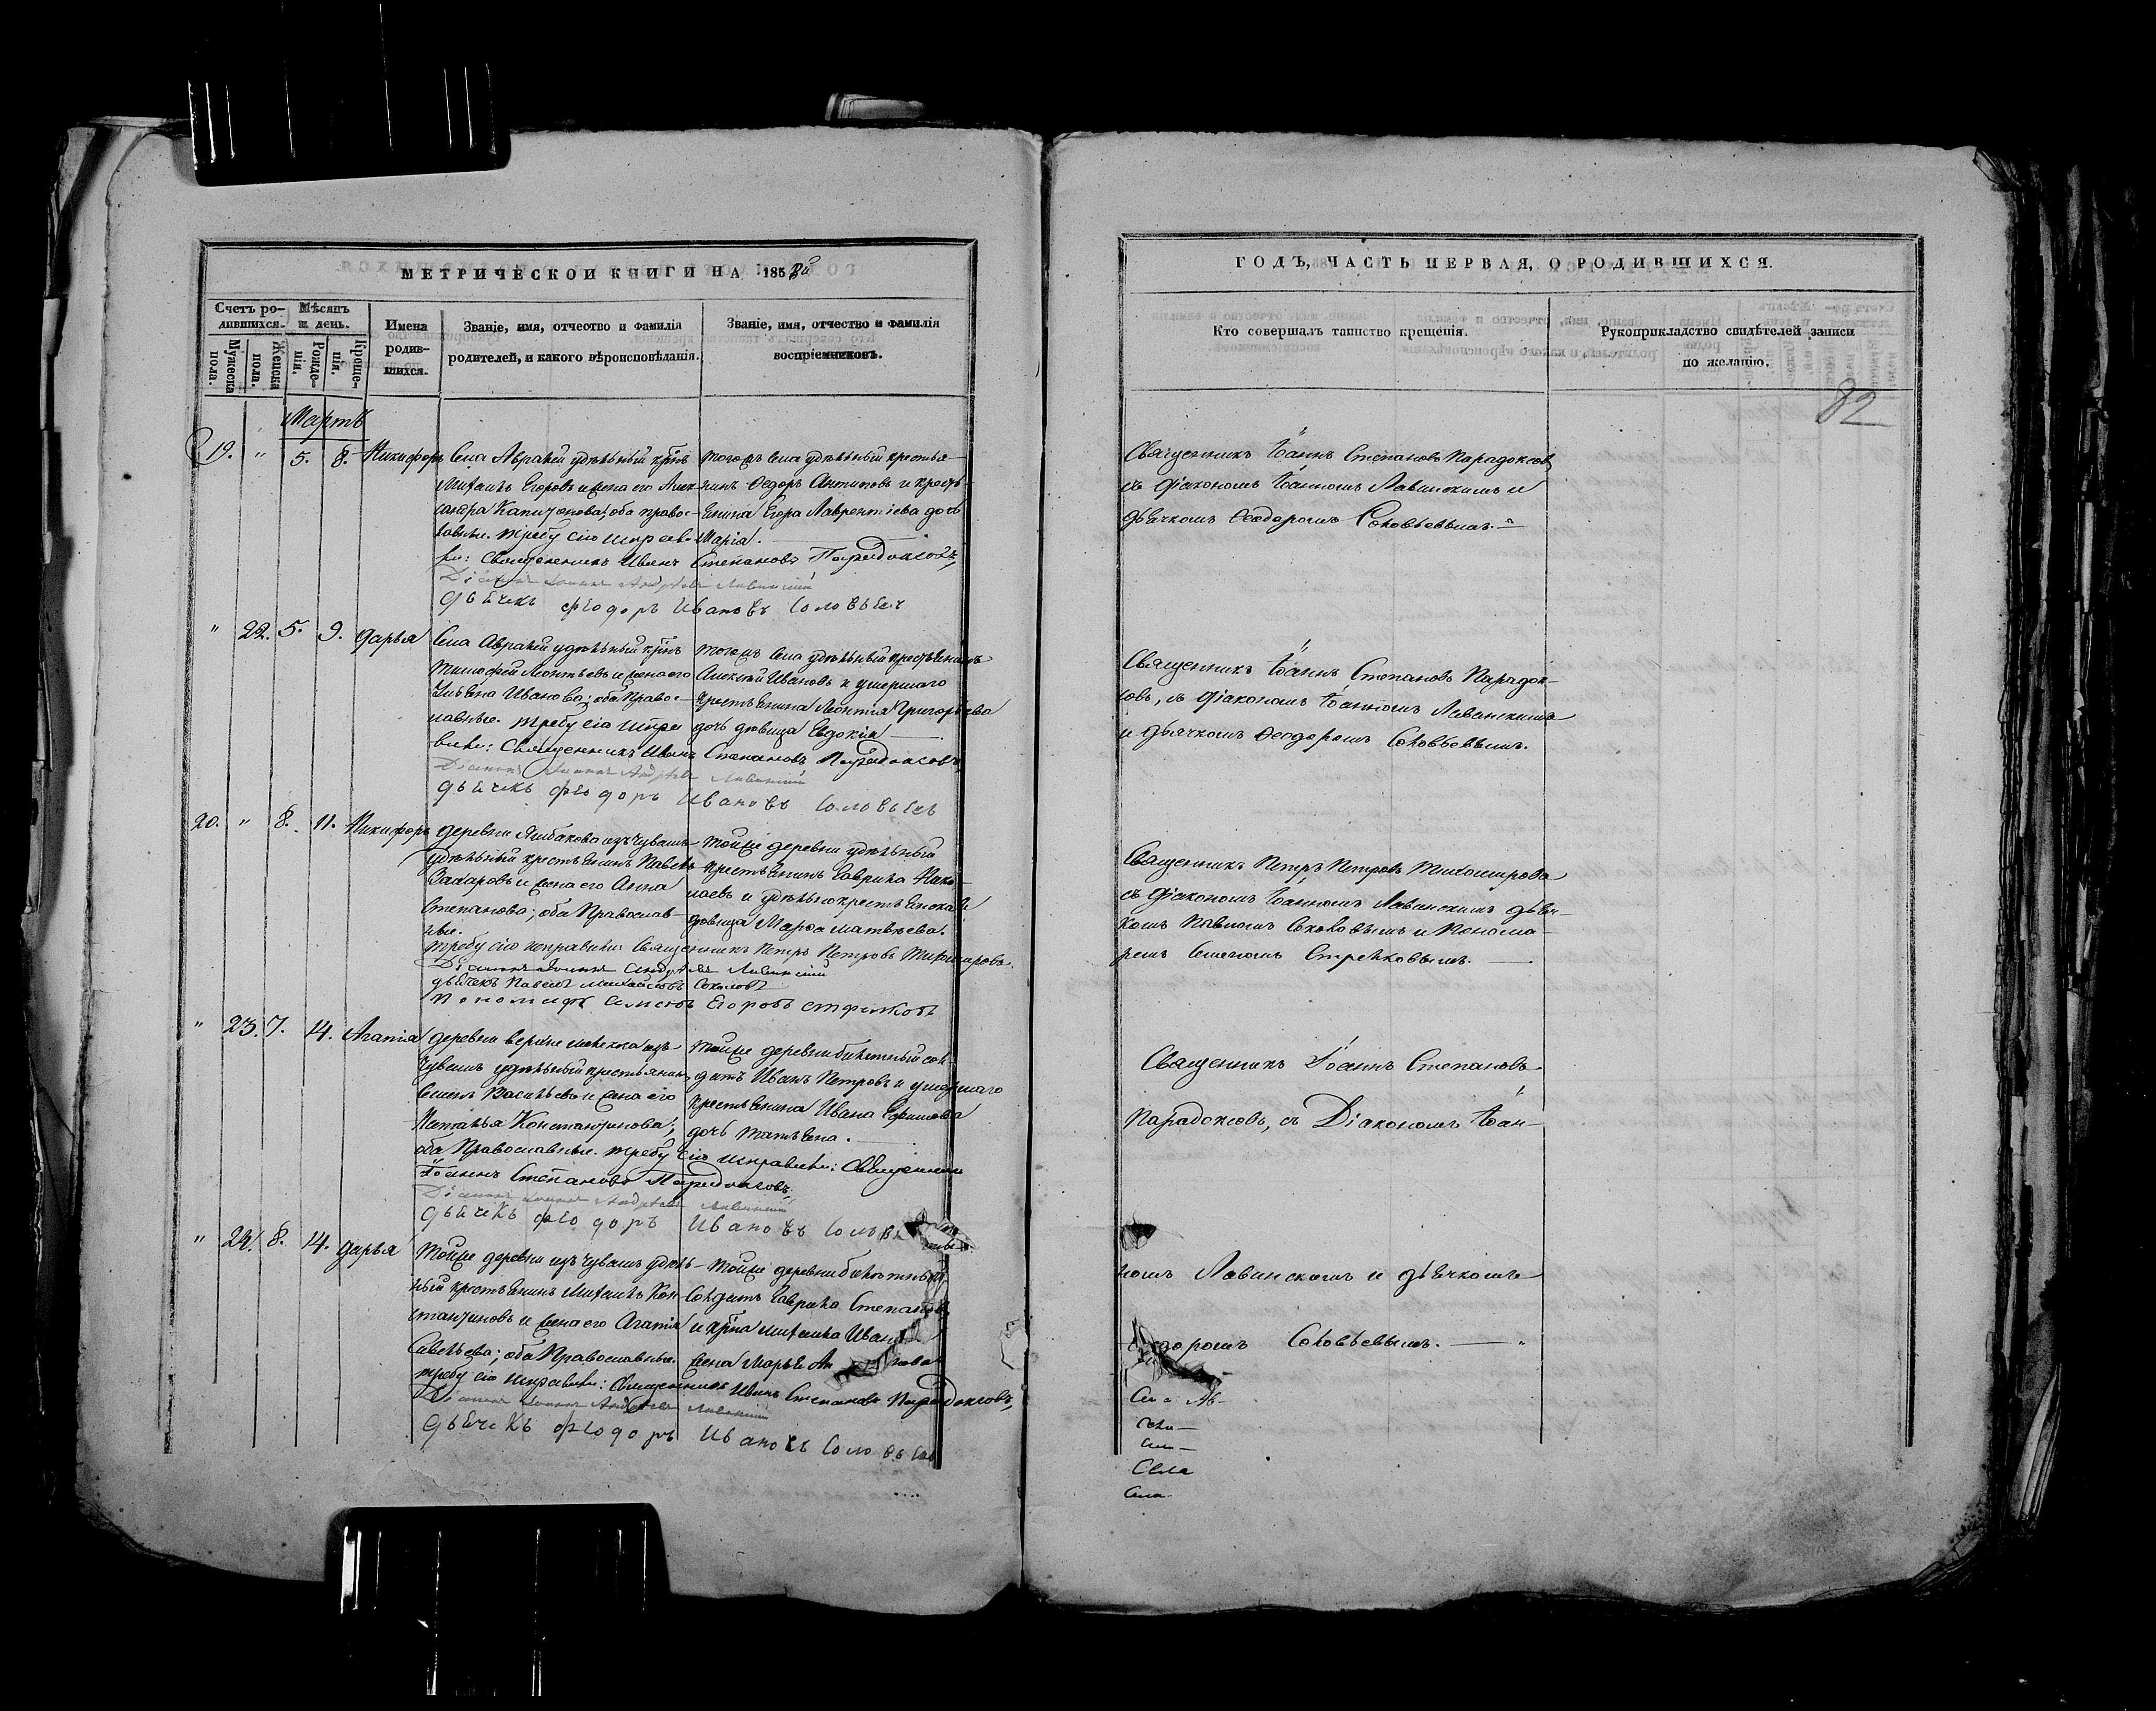 МЕТРИЧЕСКОЙ КНИГИ НА 1858й
Счетъ родившихся.
Мѣсяцъ и день.
Имена родившихся.
Званіе, имя, отчество и фамилія родителей, и какого вѣроисповѣданія.
Званіе, имя, отчество и фамилія воспріемниковъ.
Мужеска пола.
Женска пола.
Рожденія.
Крещенія.
Мартъ
19. " 5. 8. Никифоръ
Села Абрамъ удѣльный крнъ
Михаилъ Егоровъ и жена его Алек-
сандра Капитонова; оба право-
славные. Требу сію исправи-
ли: Священникъ Иванъ Степановъ Парадоксовъ,
Діаконъ Іоаннъ Андреевъ Лавинскій
дьячекъ Феодоръ Ивановъ Соловьевъ
тогожъ села удѣльный крестья-
нинъ Ѳедоръ Антиповъ и кресть-
янина Егора Лаврентіева дочь
Марія.
" 22. 5. 9. Дарья
тимофей Леонтьевъ и жена его
Ульяна Иванова; оба Право-
славные. Требу сію испра-
вили: Священникъ Иванъ Степановъ Парадоксовъ,
Діаконъ Іоаннъ Андреевъ Лавинскій
дьячекъ Феодоръ Ивановъ Соловьевъ
тогожъ села удѣльный крестьянинъ
Алексѣй Ивановъ и умершаго
крестьянина Леонтія Григорьева
дочь дѣвица Евдокія
20. " 8. 11. Никифоръ
удѣльный крестьянинъ Павелъ
Захаровъ и жена его Анна
Степанова; оба Православ-
ные.
Требу сію исправили: Священникъ Петръ Петровъ Тихомировъ.
Діаконъ Іоаннъ Андреевъ Лавинскій
дьячекъ Павелъ Михайловъ Соколовъ
Пономарь Семенъ Егоровъ Стрелковъ
тойже деревни удѣльный
крестьянинъ Гаврила Нико-
лаевъ и
дѣвица Марѳа Матвѣева.
" 23. 7. 14. Агапія
чувашъ удѣльный крестьянинъ
Семенъ Васильевъ и жена его
Наталья Константинова;
оба Православные. Требу сію исправили: Священникъ
Іоаннъ Степановъ Парадоксовъ,
Діаконъ Іоаннъ Андреевъ Лавинскій
дьячекъ Феодоръ Ивановъ
тойже деревни билетный сол-
датъ Иванъ Петровъ и умершаго
крестьянина Ивана Ефимова
дочь Татьяна.
" 24. 8. 14. Дарья
Тойже деревни изъ чувашъ удѣль-
ный крестьянинъ Михаилъ Кон-
стантиновъ и жена его Агапія
Савельева; оба Православные.
Требу сію исправили: Священникъ Иванъ Степановъ Парадоксовъ,
Діаконъ Іоаннъ Андреевъ Лавинскій
дьячекъ Феодоръ Ивановъ Соловьевъ
тойже деревни билетный
Солдатъ Гаврила Степановъ
и крна Михаила
жена Марья
ГОДЪ, ЧАСТЬ ПЕРВАЯ, О РОДИВШИХСЯ.
Кто совершалъ таинство крещенія.
Рукоприкладство свидѣтелей записи по желанію.
82
Священникъ Іоаннъ Степановъ Парадоксовъ
съ Діакономъ Іоанномъ Лавинскимъ и
дьячкомъ Ѳеодоромъ Соловьевымъ.
Священникъ Іоаннъ Степановъ Парадок-
совъ, съ Діакономъ Іоанномъ Лавинскимъ
и дьячкомъ Ѳеодоромъ Соловьевымъ.
Священникъ Петръ Петровъ Тихомировъ
съ Діакономъ Іоанномъ Лавинскимъ дьяч-
комъ Павломъ Соколовымъ и Понома-
ремъ Семеномъ Стрелковымъ.
Священникъ Іоаннъ Степановъ
Парадоксовъ, съ Діакономъ Іоан-
номъ Лавинскимъ и дьячкомъ
Соловьевымъ.
Села